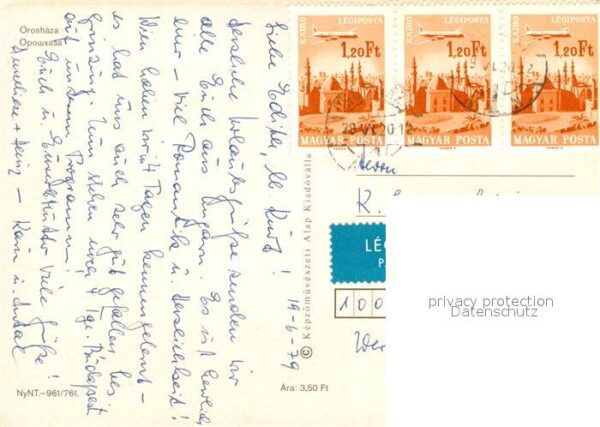 Orosháza
Орошхаза
Liebe Edith, lb. Kurt!
19-6-79
herzliche Urlaubsgrüße senden wir
alle Euch aus Ungarn. Es ist herrlich
hier – viel Romantik u. Herzlichkeit!
Wien haben wir 4 Tagen kennengelernt –
es hat uns auch sehr gut gefallen, bes.
Grinzing. Nun stehen noch 4 Tge. Budapest
auf unserem Programm!
Euch u. viele Grüße!
+ Heinz – Karin u.
NyNT.–961/761.
Ára: 3,50 Ft
© Képzőművészeti Alap Kiadóvállalata
KAIRÓ LÉGIPOSTA
1,20 Ft
MAGYAR POSTA
KAIRÓ LÉGIPOSTA
1,20 Ft
MAGYAR POSTA
KAIRÓ LÉGIPOSTA
1,20 Ft
MAGYAR POSTA
Herrn
K.
LÉG
P
100
privacy protection
Datenschutz